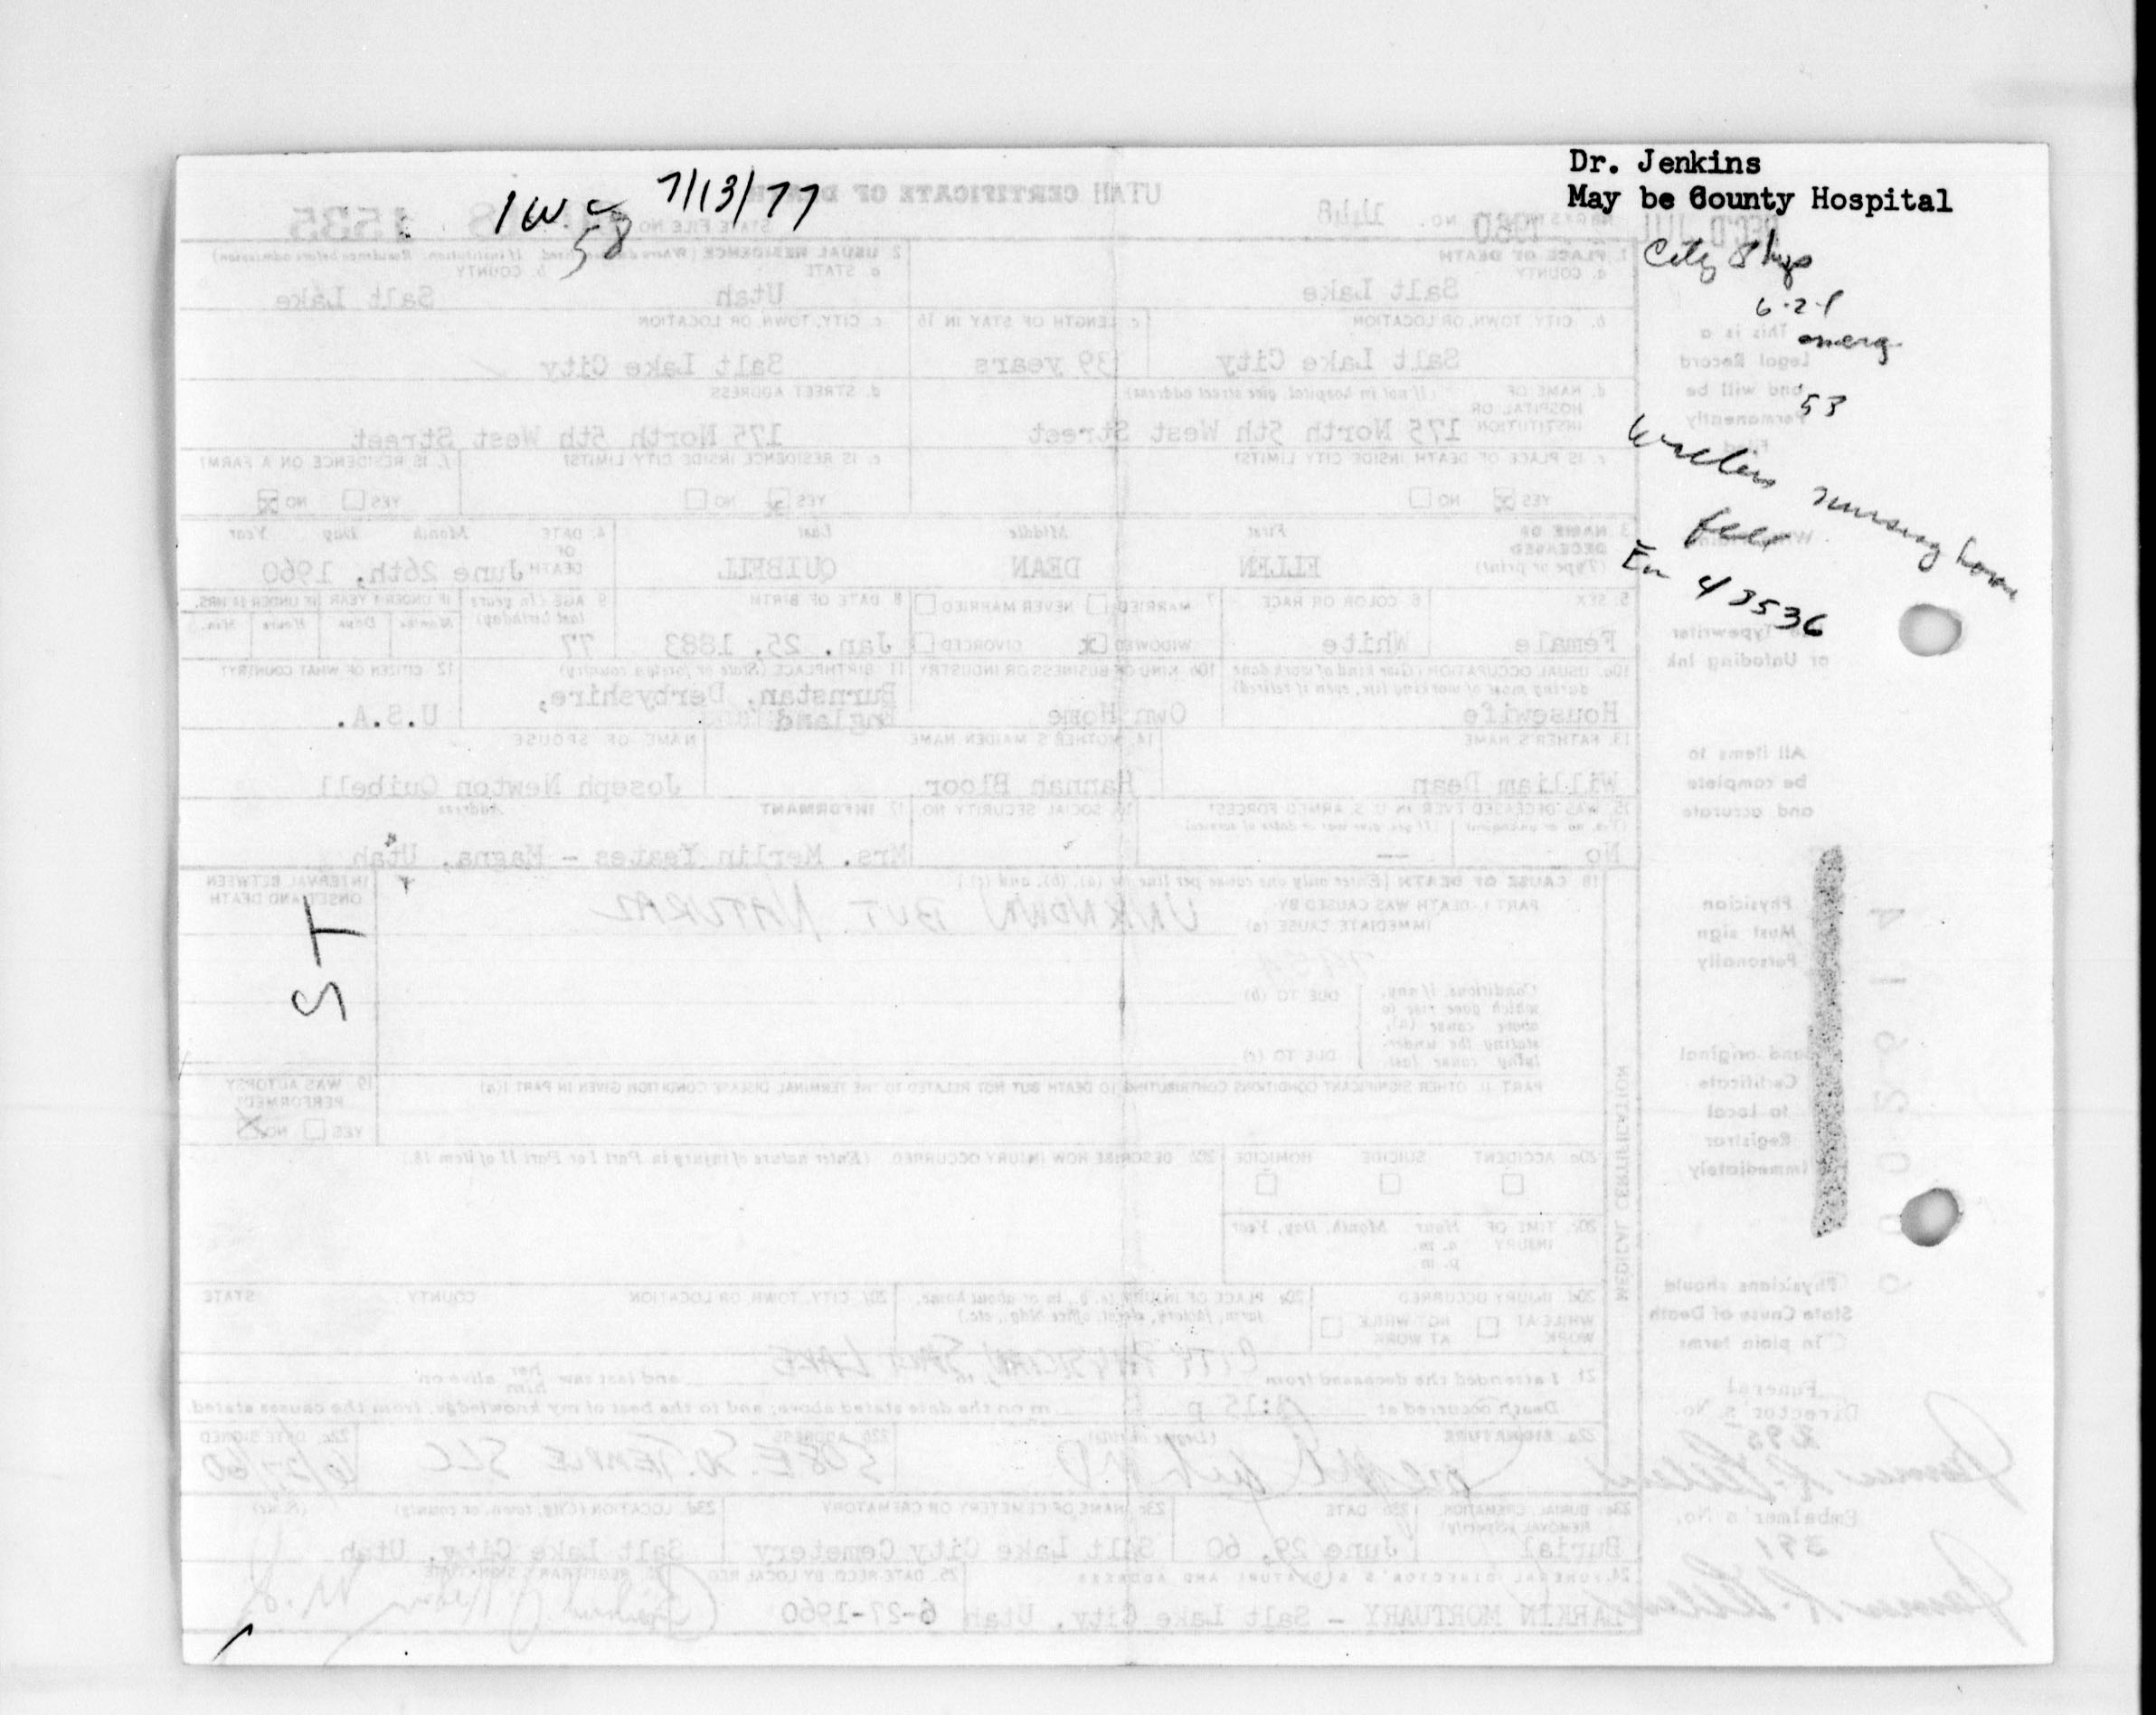 Dr. Jenkins
May be County Hospital
7/13/77
58
City Phys
emerg
53
nursing home
fell
Em 43536
ST
UTAH CERTIFICATE OF DEATH
STATE FILE NO.
1535
REC'D JUL 1960
REGISTRAR'S NO. 1448
1. PLACE OF DEATH
a. COUNTY
Salt Lake
2. USUAL RESIDENCE (Where deceased lived. If institution: Residence before admission)
a. STATE
Utah
b. COUNTY
Salt Lake
b. CITY, TOWN, OR LOCATION
Salt Lake City
c. LENGTH OF STAY IN 1b
39 years
c. CITY, TOWN, OR LOCATION
Salt Lake City
d. NAME OF HOSPITAL OR INSTITUTION (If not in hospital, give street address)
175 North 5th West Street
d. STREET ADDRESS
175 North 5th West Street
e. IS PLACE OF DEATH INSIDE CITY LIMITS?
YES NO
e. IS RESIDENCE INSIDE CITY LIMITS?
YES NO
f. IS RESIDENCE ON A FARM?
YES NO
3. NAME OF DECEASED (Type or print)
First Middle Last
ELLEN DEAN QUIBELL
4. DATE OF DEATH
Month Day Year
June 26th, 1960
5. SEX
Female
6. COLOR OR RACE
White
7. MARRIED NEVER MARRIED
WIDOWED DIVORCED
8. DATE OF BIRTH
Jan. 25, 1883
9. AGE (In years last birthday)
77
IF UNDER 1 YEAR
IF UNDER 24 HRS.
10a. USUAL OCCUPATION (Give kind of work done during most of working life, even if retired)
Housewife
10b. KIND OF BUSINESS OR INDUSTRY
Own Home
11. BIRTHPLACE (State or foreign country)
Burnstan, Derbyshire,
England
12. CITIZEN OF WHAT COUNTRY?
U.S.A.
13. FATHER'S NAME
William Dean
14. MOTHER'S MAIDEN NAME
Hannah Bloor
NAME OF SPOUSE
Joseph Newton Quibell
15. WAS DECEASED EVER IN U. S. ARMED FORCES?
(Yes, no, or unknown) (If yes, give war or dates of service)
No --
16. SOCIAL SECURITY NO.
17. INFORMANT Address
Mrs. Merlin Yeates - Magna, Utah
18. CAUSE OF DEATH [Enter only one cause per line for (a), (b), and (c).]
PART I. DEATH WAS CAUSED BY:
IMMEDIATE CAUSE (a)
UNKNOWN BUT NATURAL
INTERVAL BETWEEN ONSET AND DEATH
Conditions, if any, which gave rise to above cause (a), stating the underlying cause last.
DUE TO (b)
DUE TO (c)
PART II. OTHER SIGNIFICANT CONDITIONS CONTRIBUTING TO DEATH BUT NOT RELATED TO THE TERMINAL DISEASE CONDITION GIVEN IN PART I(a)
19. WAS AUTOPSY PERFORMED?
YES NO
20a. ACCIDENT SUICIDE HOMICIDE
20b. DESCRIBE HOW INJURY OCCURRED. (Enter nature of injury in Part I or Part II of item 18.)
20c. TIME OF INJURY
Hour Month, Day, Year
a. m.
p. m.
20d. INJURY OCCURRED
WHILE AT WORK NOT WHILE AT WORK
20e. PLACE OF INJURY (e. g., in or about home, farm, factory, street, office bldg., etc.)
20f. CITY, TOWN, OR LOCATION COUNTY STATE
CITY PHYSICIAN SALT LAKE
21. I attended the deceased from
and last saw her him alive on
Death occurred at :15 p m on the date stated above; and to the best of my knowledge, from the causes stated.
22a. SIGNATURE (Degree or title)
22b. ADDRESS
E. SO. TEMPLE SLC
22c. DATE SIGNED
6/27/60
23a. BURIAL, CREMATION, REMOVAL (Specify)
Burial
23b. DATE
June 29, 60
23c. NAME OF CEMETERY OR CREMATORY
Salt Lake City Cemetery
23d. LOCATION (City, town, or county) (State)
Salt Lake City, Utah
24. FUNERAL DIRECTOR'S SIGNATURE AND ADDRESS
LARKIN MORTUARY - Salt Lake City, Utah
25. DATE RECD BY LOCAL REG.
6-27-1960
26. REGISTRAR'S SIGNATURE
MEDICAL CERTIFICATION
This is a
Legal Record
and will be
Permanently
Filed
Typewriter
or Unfading Ink
All items to
be complete
and accurate
Physician
Must sign
Personally
Send original
Certificate
to Local
Registrar
Immediately
Physicians should
State Cause of Death
in plain terms
Funeral
Director's No.
295
Embalmer's No.
391